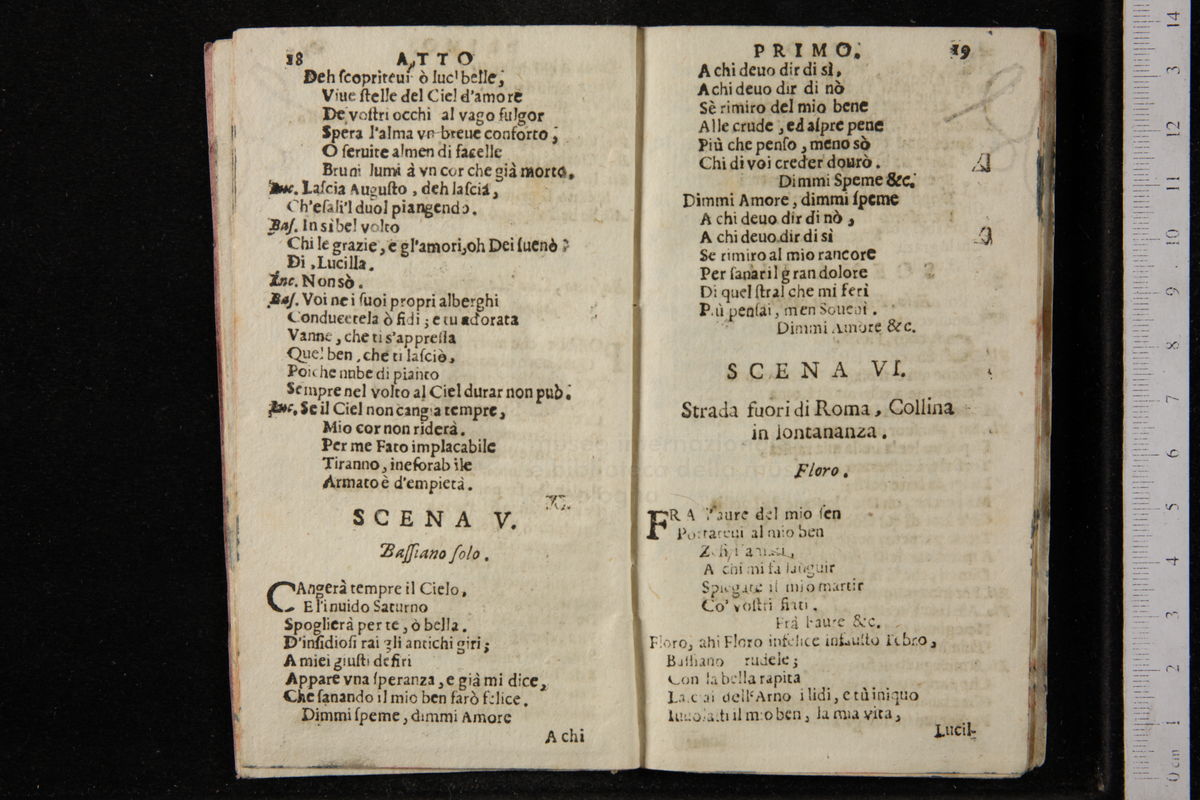 18 ATTO
Deh scopriteui ò luci belle,
Viue stelle del Ciel d'amore
De vostri occhi al vago fulgor
Spera l'alma vn breue conforto,
O seruite almen di facelle
Bruni lumi à vn cor che già morto.
Luc. Lascia Augusto, deh lascia,
Ch'esali'l duol piangendo.
Bas. In sì bel volto
Chi le grazie, e gl'amori, oh Dei suenò?
Di, Lucilla.
Luc. Non sò.
Bas. Voi nei suoi propri alberghi
Conducetela ò fidi; e tu adorata
Vanne, che ti s'appressa
Quel ben, che ti lasciò,
Poiche nube di pianto
Sempre nel volto al Ciel durar non può.
Luc. Se il Ciel non cangia tempre,
Mio cor non riderà.
Per me Fato implacabile
Tiranno, inesorabile
Armato è d'empietà.
SCENA V.
Bassiano solo.
CAngerà tempre il Cielo,
E l'inuido Saturno
Spoglierà per te, ò bella.
D'insidiosi rai gli antichi giri;
A miei giusti desiri
Appare vna speranza, e già mi dice,
Che sanando il mio ben sarò felice.
Dimmi speme, dimmi Amore
A chi
PRIMO. 19
A chi deuo dir di sì,
A chi deuo dir di nò
Sè rimiro del mio bene
Alle crude, ed aspre pene
Più che penso, meno sò
Chi di voi creder dourò.
Dimmi Speme &c.
Dimmi Amore, dimmi speme
A chi deuo dir di nò,
A chi deuo dir di sì
Se rimiro al mio rancore
Per sanar il gran dolore
Di quel stral che mi ferì
Più pensai, men
Dimmi Amore &c.
SCENA VI.
Strada fuori di Roma, Collina
in lontananza.
Floro.
FRA l'aure del mio sen
Portateui al mio ben
A chi mi fa languir
Spiegate il mio martir
Co' vostri fiati.
Frà l'aure &c.
Floro, ahi Floro infelice infausto Tebro,
Bassiano crudele;
Con la bella rapita
Lasciai dell'Arno i lidi, e tù iniquo
il mio ben, la mia vita,
Lucil-